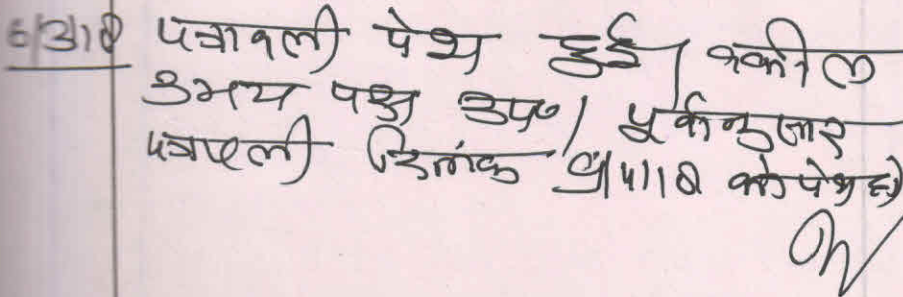 6/3/18 पत्रावली पेश हुई। वकील
उभय पक्ष उप०। पूर्वानुसार
पत्रावली दिनांक 9/4/18 को पेश हो